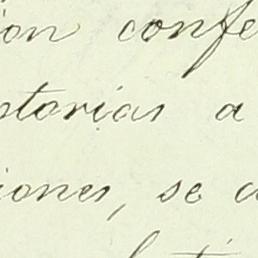 ion confe
storias a
iones, se c